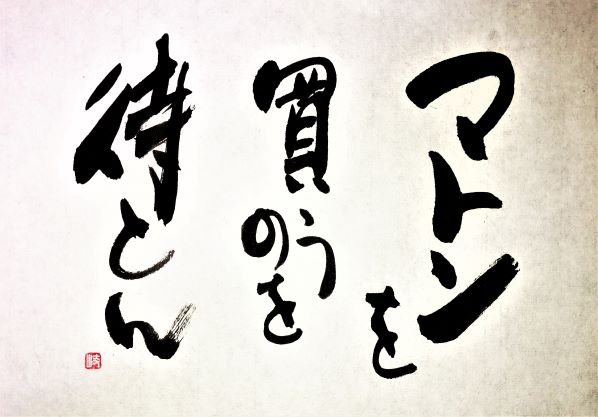 マトンを
買うのを
待とん